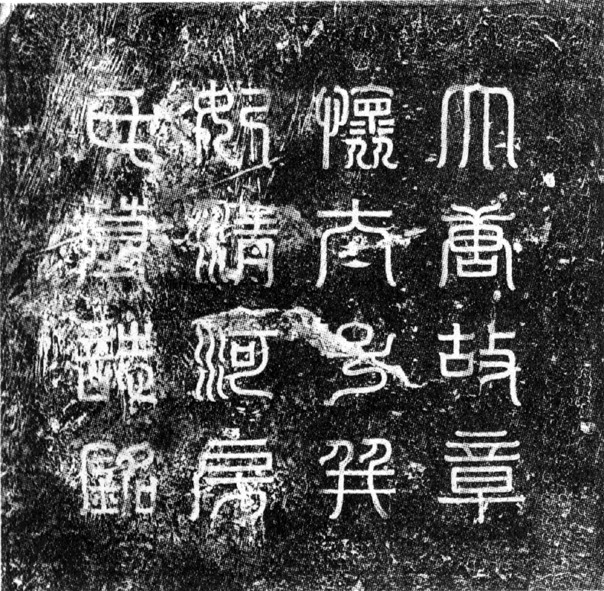 大唐故章
懷太子并
妃清河房
氏墓誌銘